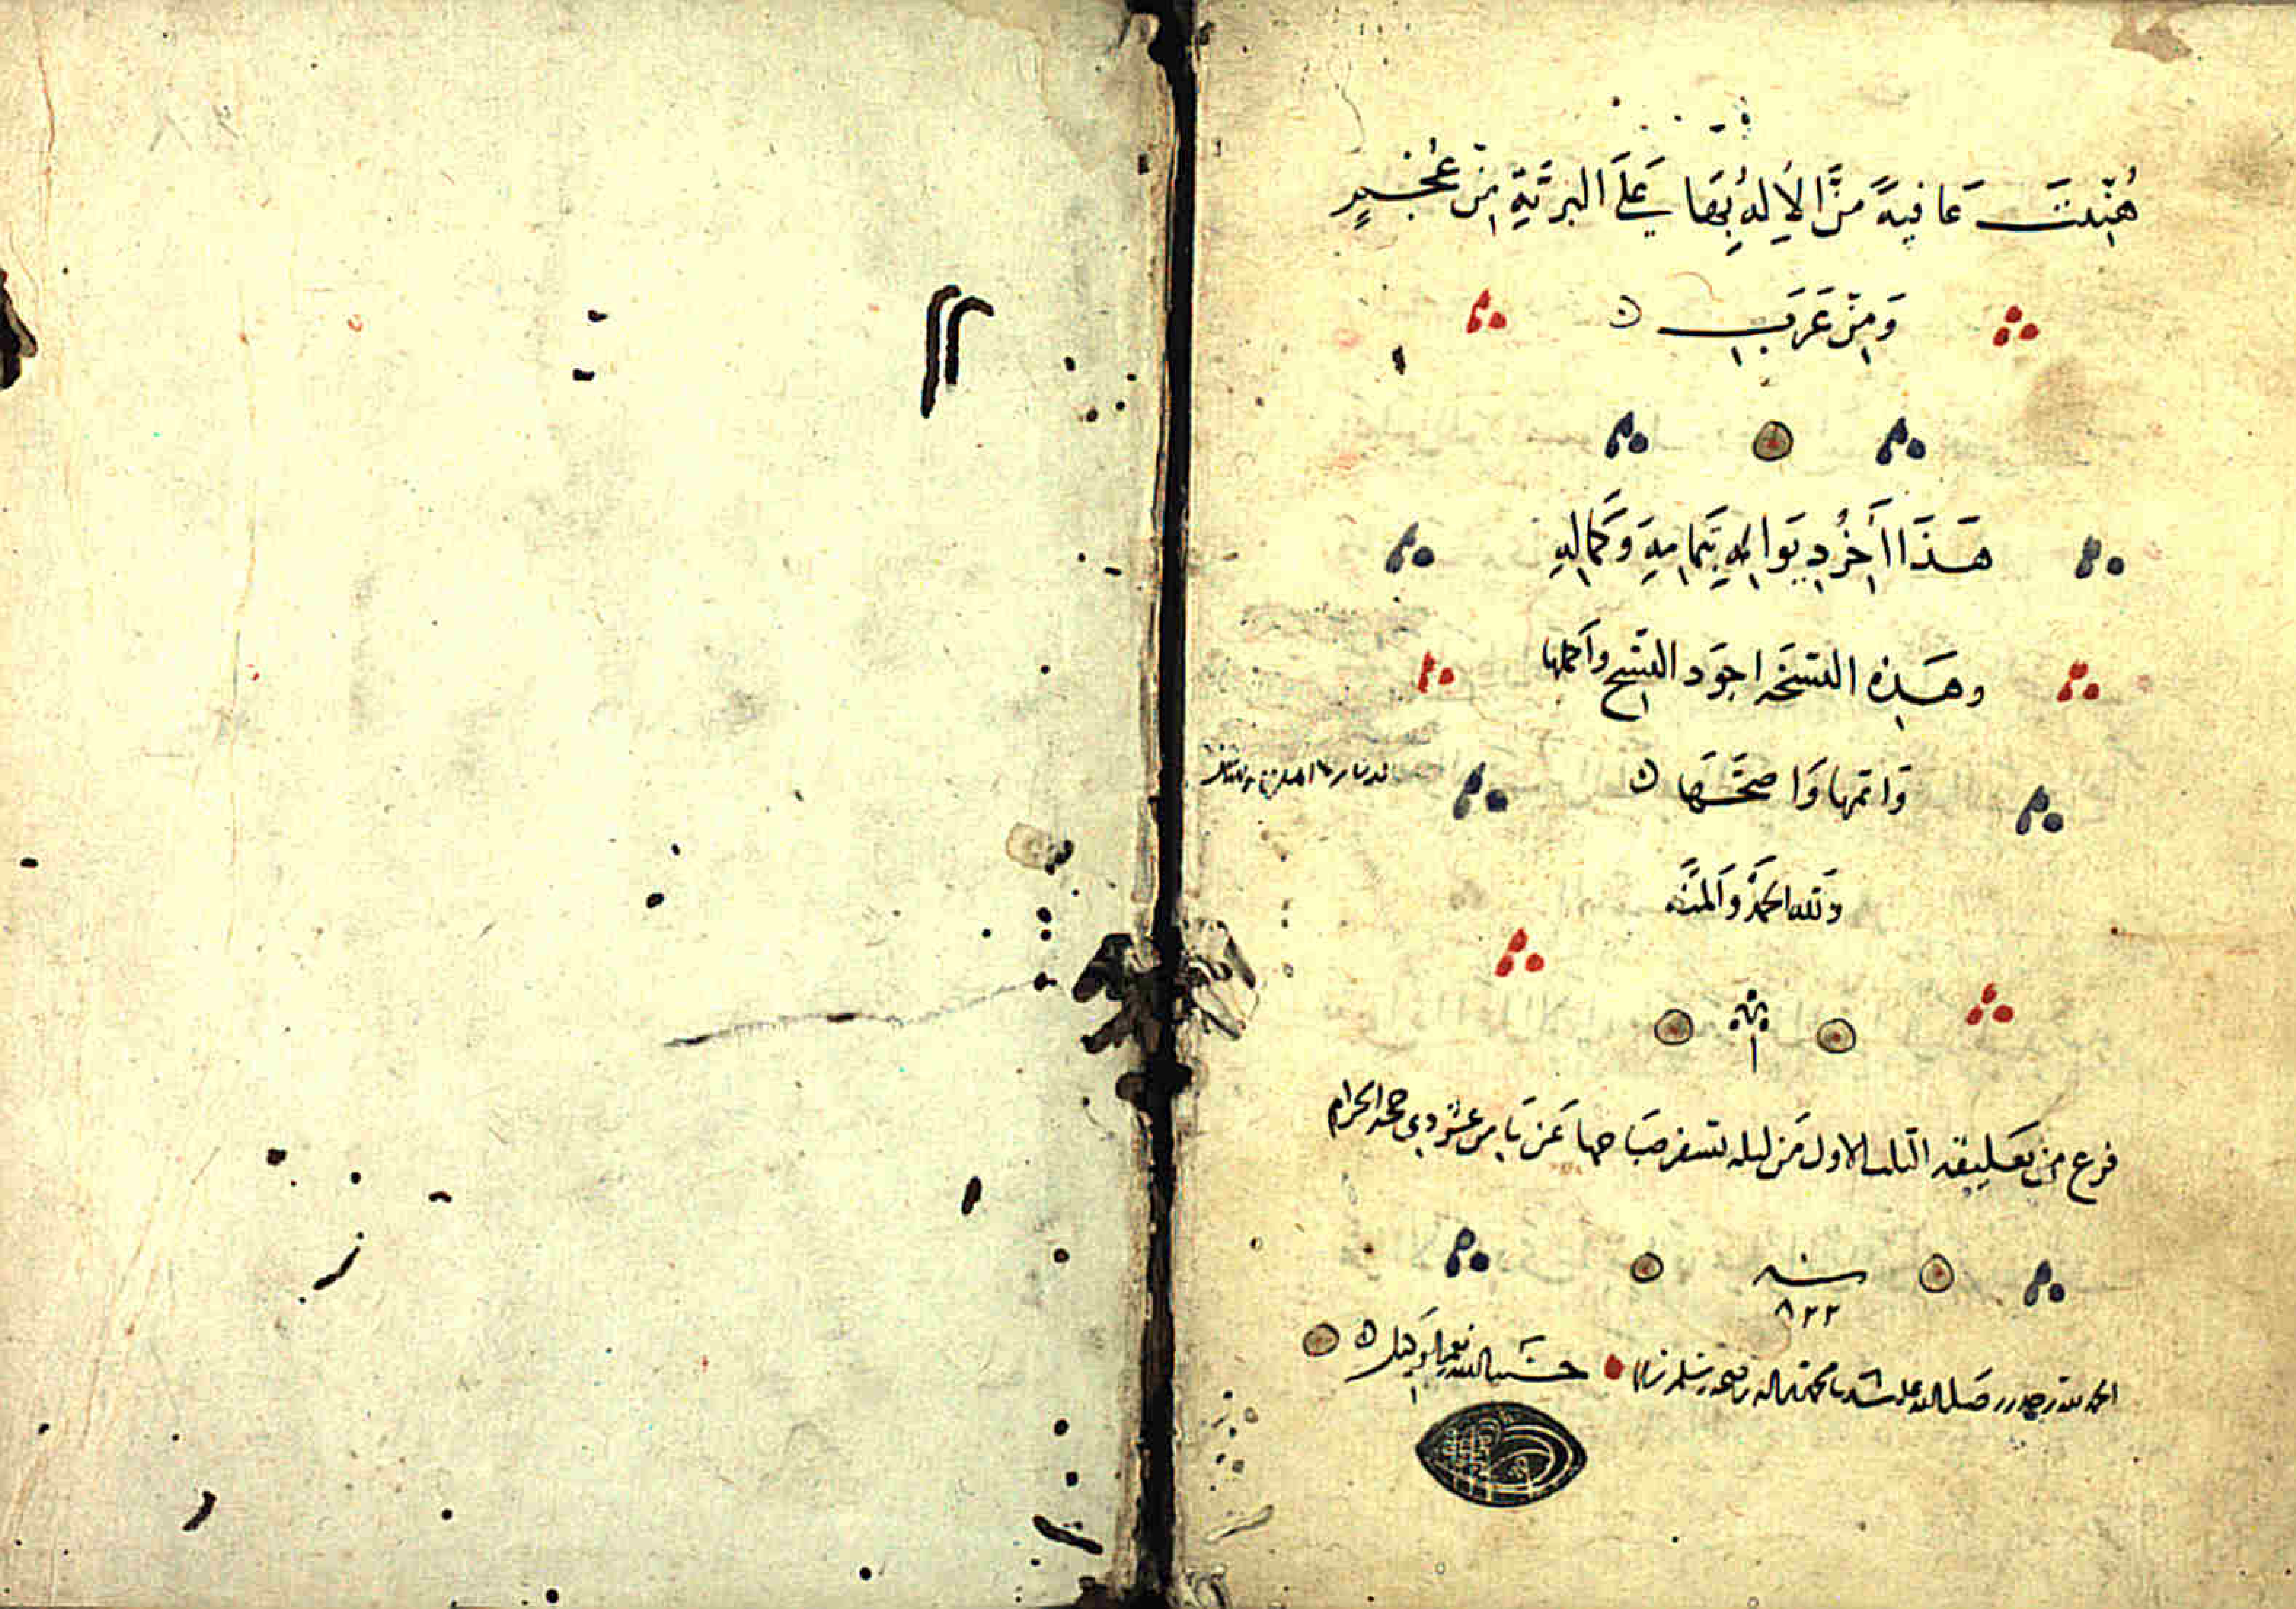 هُنِّئتَ عَافيةً مَنَّ الإِلهُ بِهَا عَلَى البَرِيَّةِ مِنْ عُجْمٍ
وَمِنْ عَرَبِ
هَذَا أَخِرُ دِيوَانِهِ بِتَمَامِهِ وَكَمَالِهِ
وهَذِه النسْخَه اجوَد النسَخ وأكملها
وَاتمها وَاصحَّهَا
وَلله الحمدُ وَالمنَّه
فرغ مِن تعليقه الثلث الاول مَن ليله تسفر صبَاحها عَن ثامن عشر ذي حجه الحرام
سنه
٨٢٢
الحمد لله وحده وصلى الله على سيدنا محمد واله وصحبه وسلم حسبنا الله ونعم الوكيل